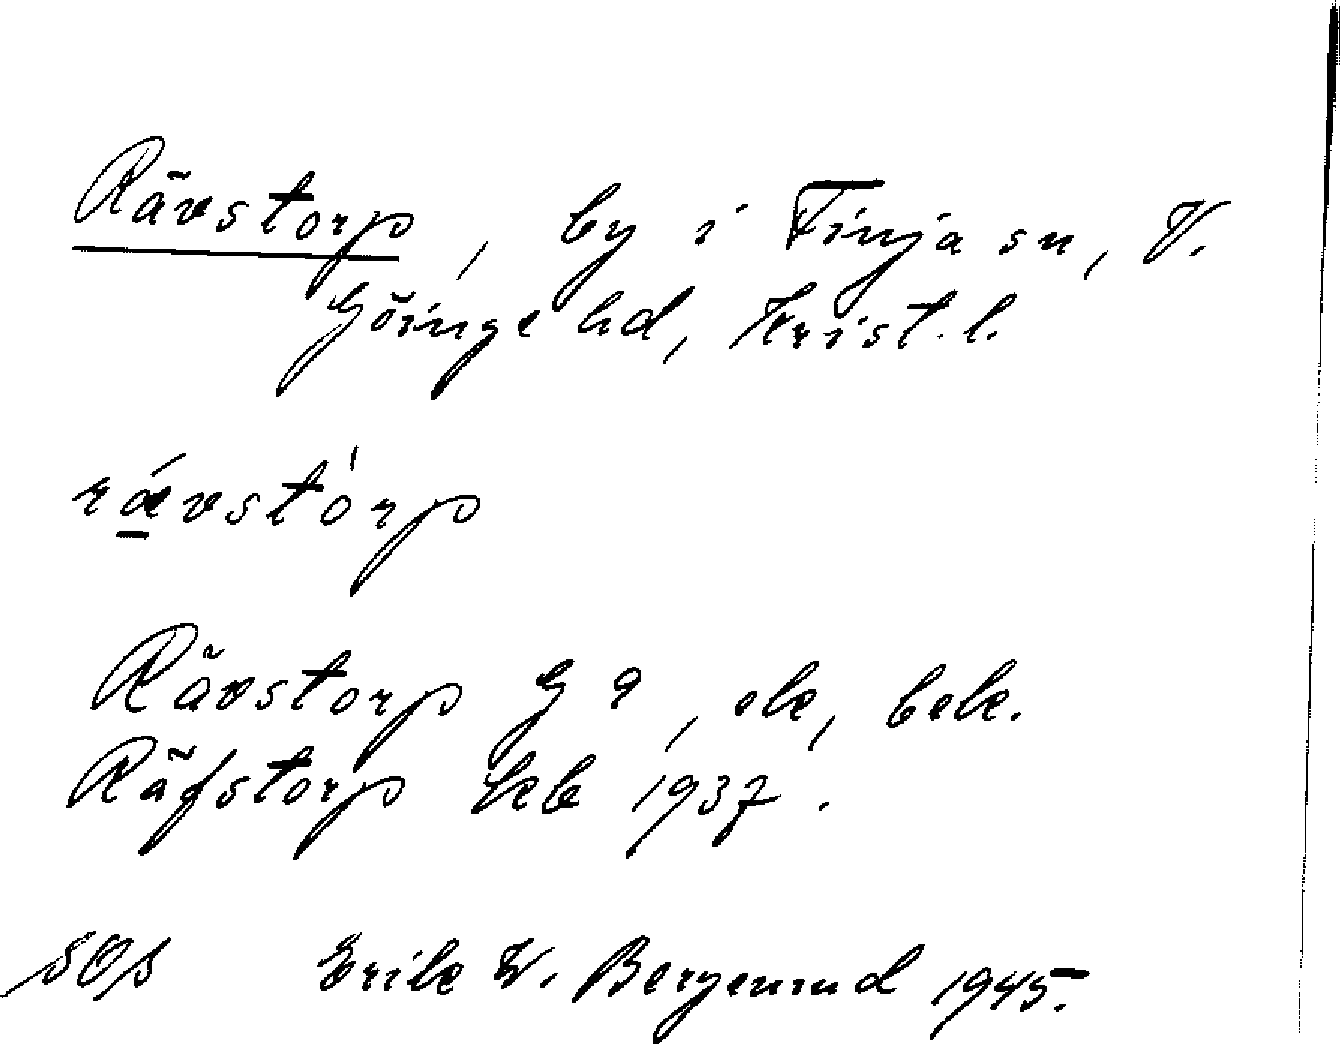 Rävstorp, by i Finja sn, V.
Göinge hd, Krist. l.
rǽvstórp
Rävstorp G 9, ek, bek.
Räfstorp keb 1937.
SOS Erik W. Bergenund 1945.